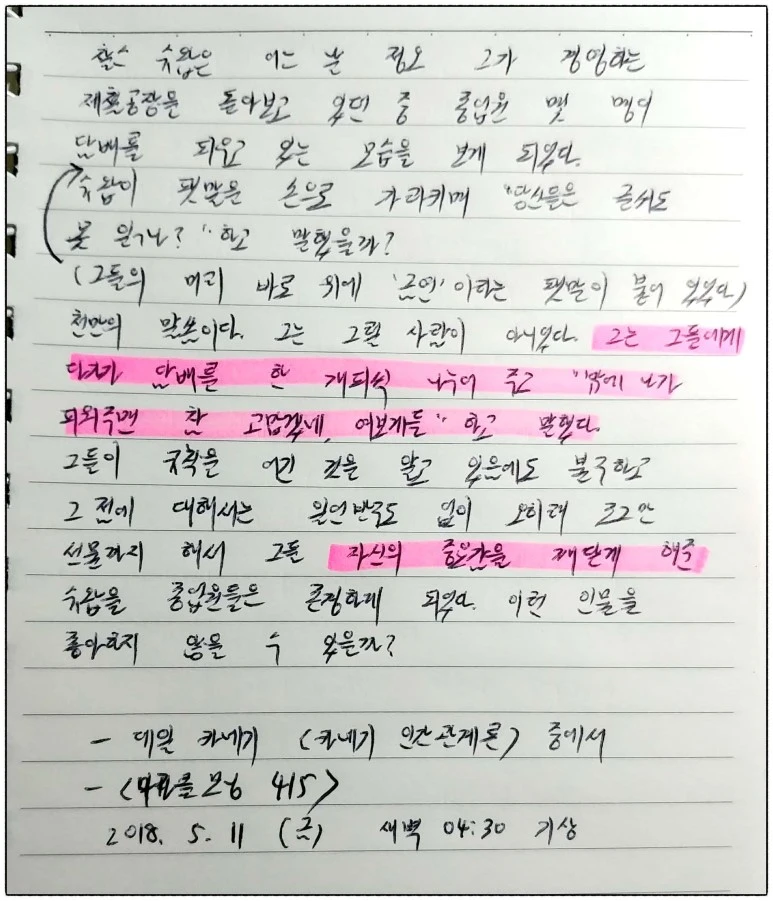 찰스 슈왑은 어느 날 정오 그가 경영하는
제철공장을 돌아보고 있던 중 종업원 몇 명이
담배를 피우고 있는 모습을 보게 되었다.
슈왑이 팻말을 손으로 가리키며 "당신들은 글씨도
못 읽나?" 하고 말했을까?
(그들의 머리 바로 위에 '금연'이라는 팻말이 붙어 있었다)
천만의 말씀이다. 그는 그럴 사람이 아니었다. 그는 그들에게
다가가 담배를 한 개피씩 나누어 주고 "밖에 나가
피워주면 참 고맙겠네, 여보게들" 하고 말했다.
그들이 규칙을 어긴 것을 알고 있음에도 불구하고
그 점에 대해서는 일언반구도 없이 오히려 조그만
선물까지 해서 그들 자신의 중요감을 깨닫게 해준
슈왑을 종업원들은 존경하게 되었다. 이런 인물을
좋아하지 않을 수 있을까?
- 데일 카네기 <카네기 인간관계론> 중에서
- <미라클모닝 415>
2018. 5. 11 (금) 새벽 04:30 기상